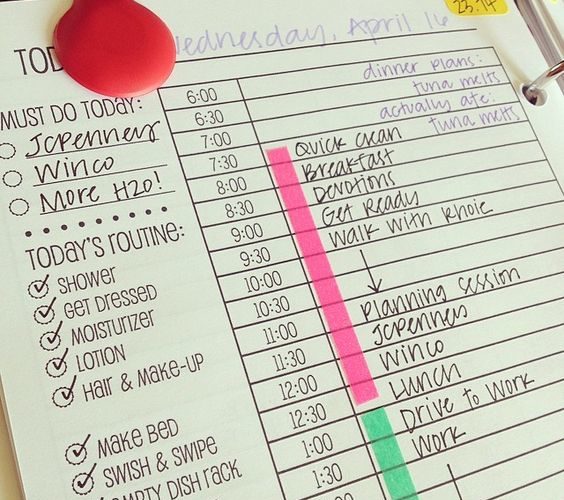 23.14
TOD
Wednesday, April 16
MUST DO TODAY:
JCPenney
Winco
More H2O!
TODAY'S ROUTINE:
SHOWER
GET DRESSED
MOISTURIZER
LOTION
HAIR & MAKE-UP
MAKE BED
SWISH & SWIPE
EMPTY DISH RACK
dinner plans:
tuna melts
actually ate:
tuna melts
6:00
6:30
7:00 Quick Clean
7:30 Breakfast
8:00 Devotions
8:30 Get Ready
9:00 Walk with
9:30
10:00
10:30 Planning Session
11:00 JCPenney
11:30 Winco
12:00 Lunch
12:30 Drive to Work
1:00 Work
1:30